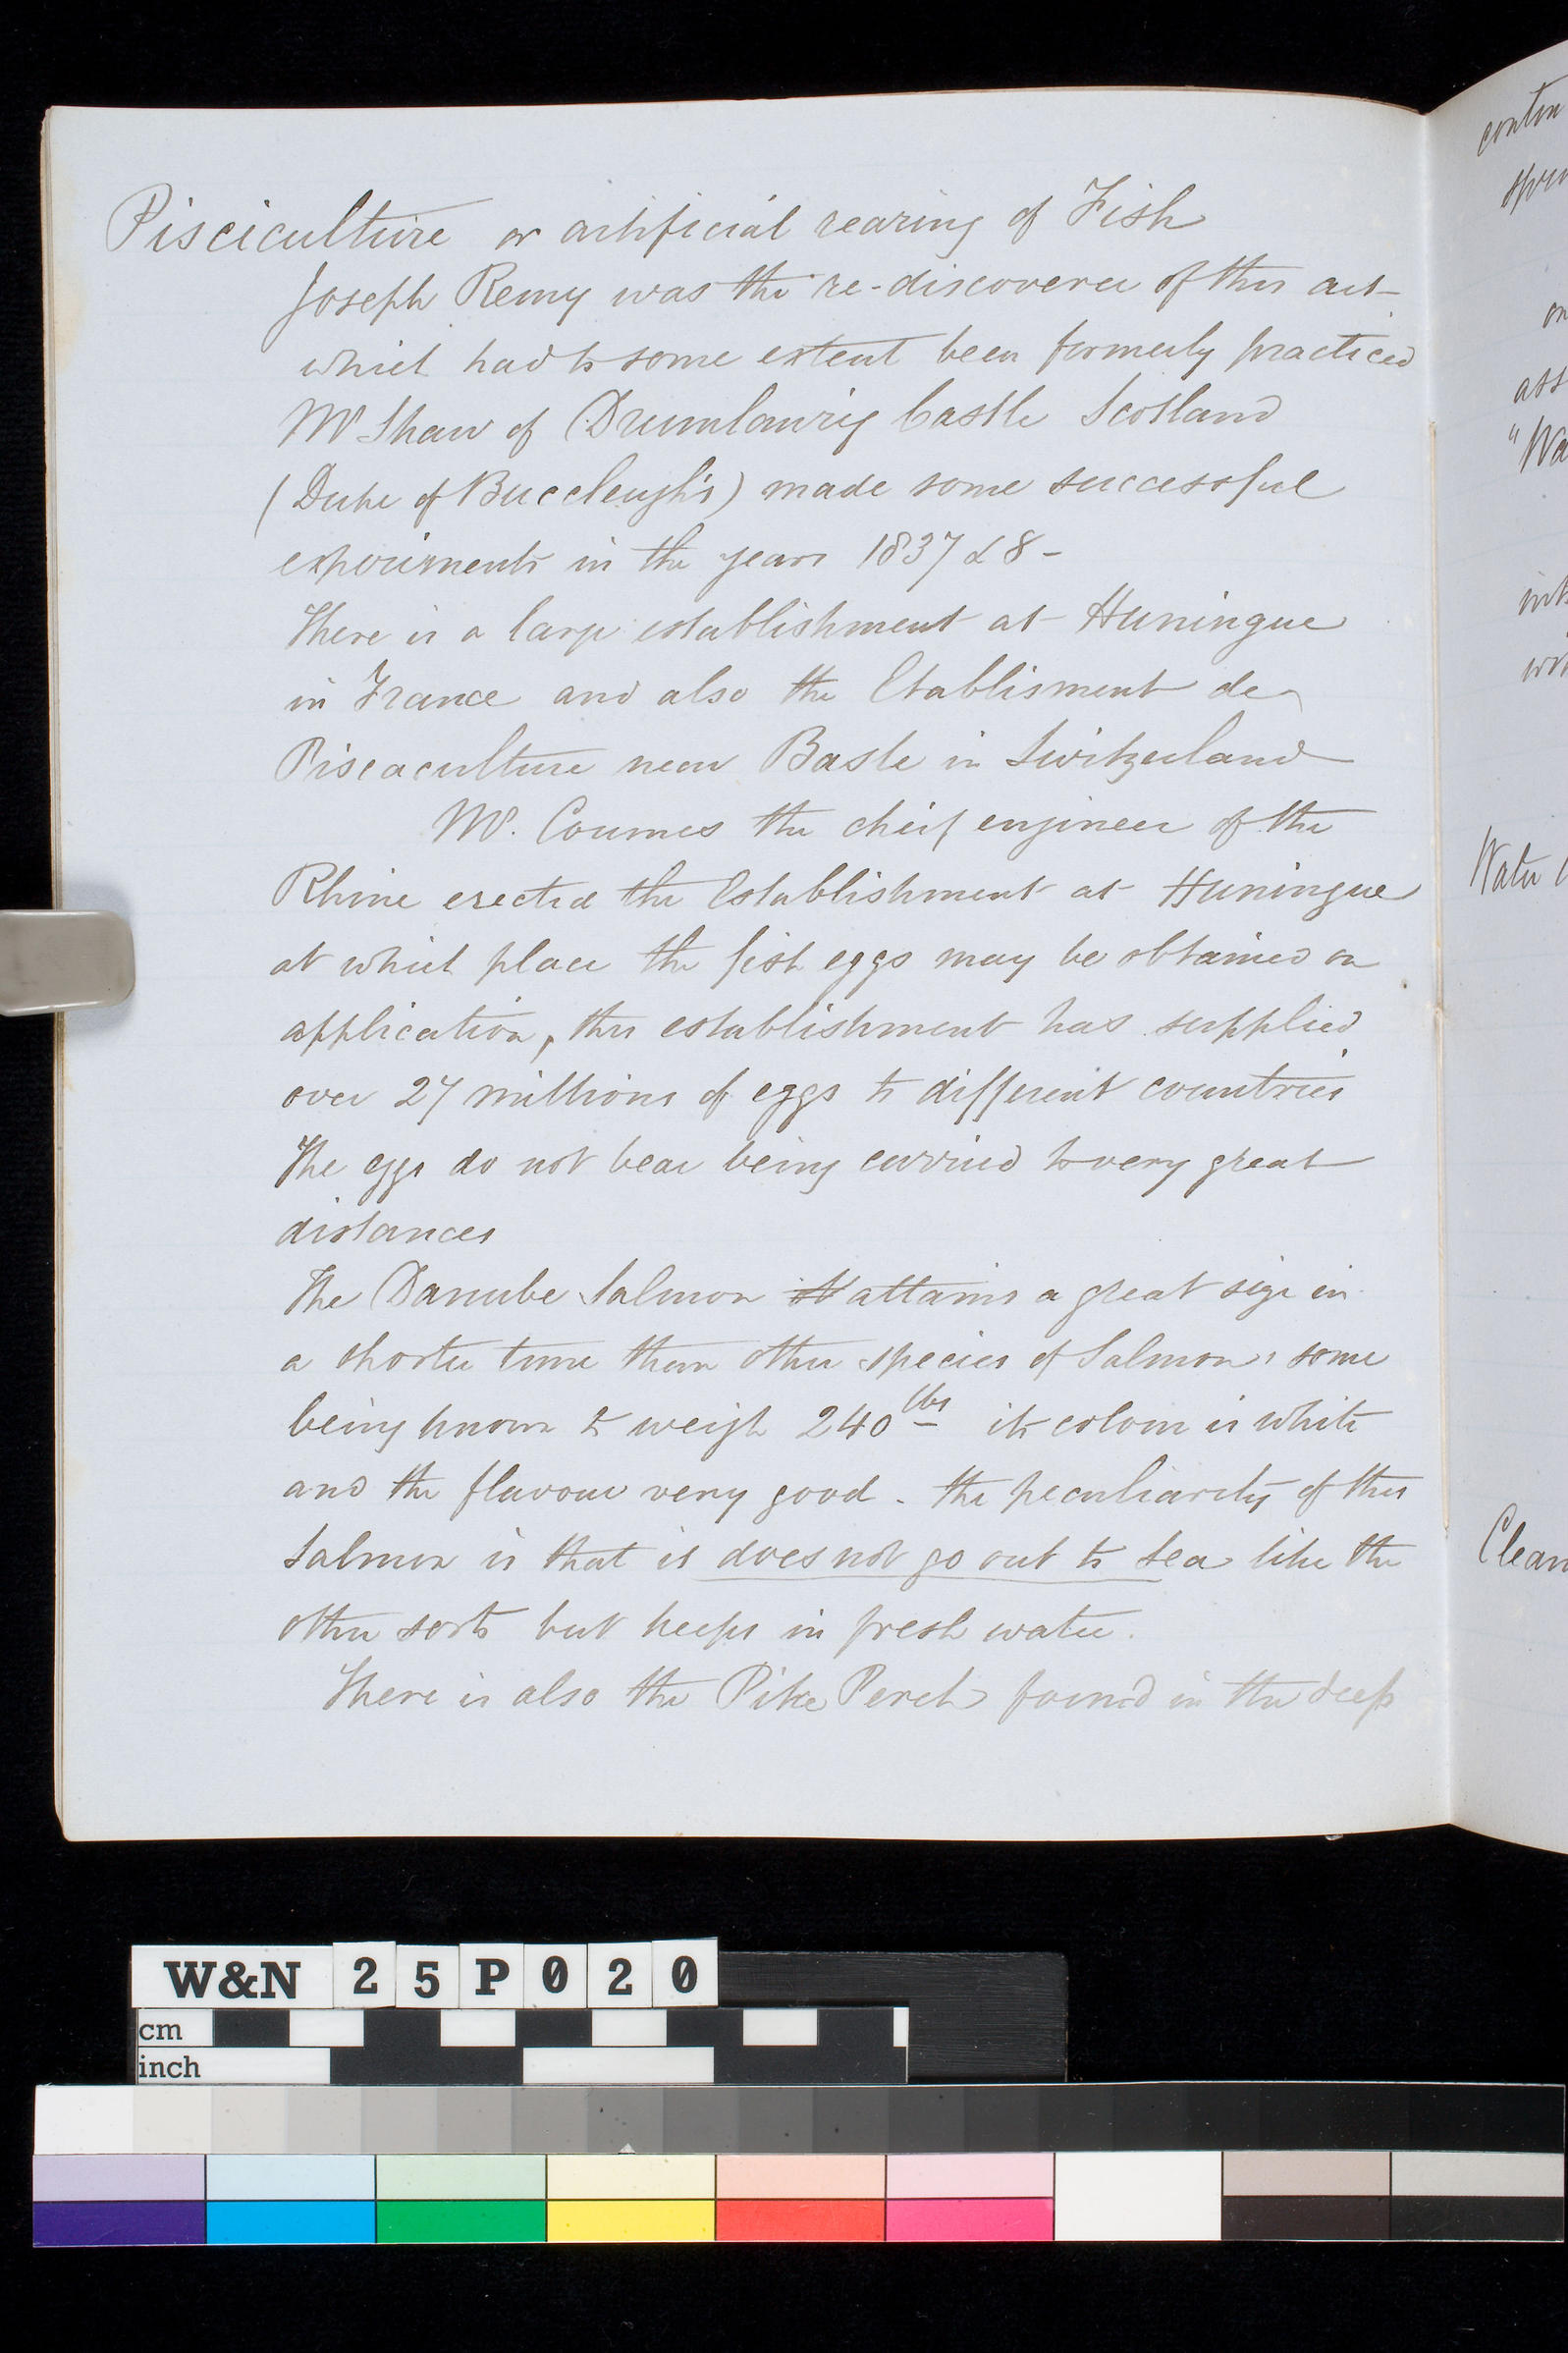 Pisciculture or artificial rearing of Fish
Joseph Remy was the re-discoverer of this art -
which had to some extent been formerly practiced
Mr Shaw of Drumlanrig Castle Scotland
(Duke of Buccleugh's) made some successful
experiments in the years 1837 & 8 -
There is a large establishment at Huningue
in France and also the Etablisment de
Piscaculture near Basle in Switzerland
Mr. Coumes the cheif engineer of the
Rhine erected the Establishment at Huningue
at which place the fish eggs may be obtained on
application, this establishment has supplied
over 27 millions of eggs to different countries
The eggs do not bear being carried to very great
distances
The Danube Salmon it attains a great size in
a shorter time than other species of Salmon, some
being known to weigh 240 lbs its colour is white
and the flavour very good - the peculiarity of this
Salmon is that is does not go out to Sea like the
other sorts but keeps in fresh water.
There is also the Pike Perch found in the deep
contin
on
ass
"Wa
Water
Clean
W&N 25P020
cm
inch